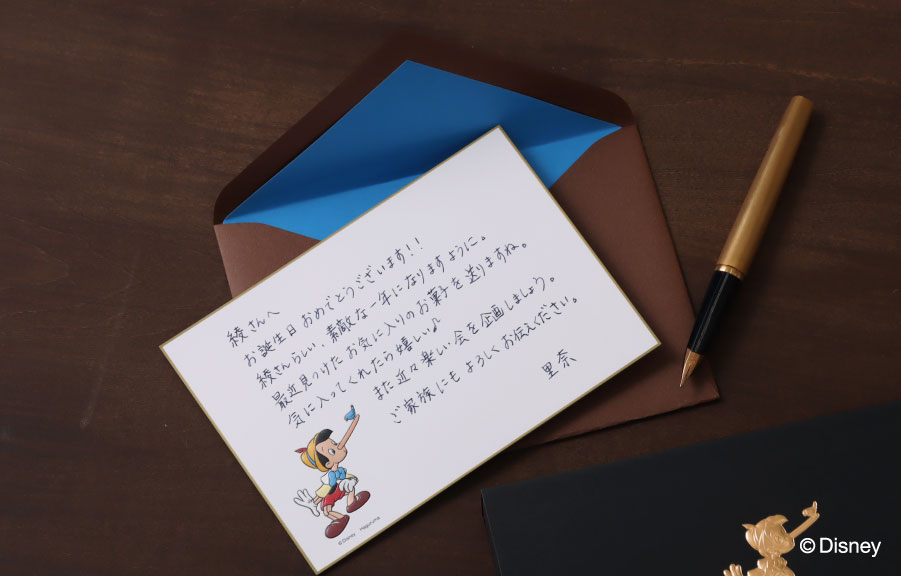 綾さんへ
お誕生日おめでとうございます!!
綾さんらしい、素敵な一年になりますように。
最近見つけたお気に入りのお菓子を送りますね。
気に入ってくれたら嬉しい♪
また近々楽しい会を企画しましょう。
ご家族にもよろしくお伝えください。
里奈
© Disney Haguruma
© Disney